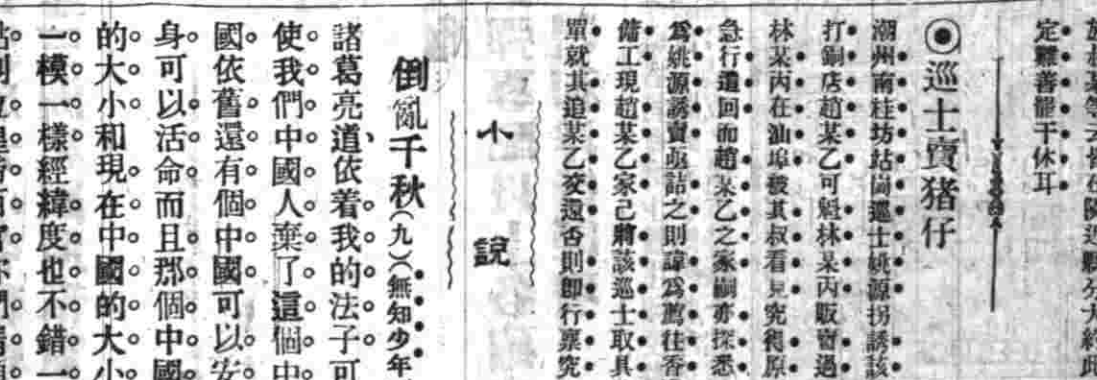 定難善罷干休耳
◉巡士賣猪仔
潮州南桂坊站崗巡士姚源拐誘該
打銅店趙某乙可魁林某丙販賣過
林某丙在汕埠被其叔看見究得原
急行遣回而趙某乙之家嗣亦探悉
爲姚源誘賣亟詰之則諱爲薦往香
傭工現趙某乙家已將該巡士取具
單就其追某乙交還否則即行稟究
小說
倒亂千秋(九)(無知少年
諸葛亮道、依着我的法子可
使我們中國人棄了這個中
國依舊還有個中國可以安
身可以活命而且那個中國
的大小和現在中國的大小
一模一樣經緯度也不錯一